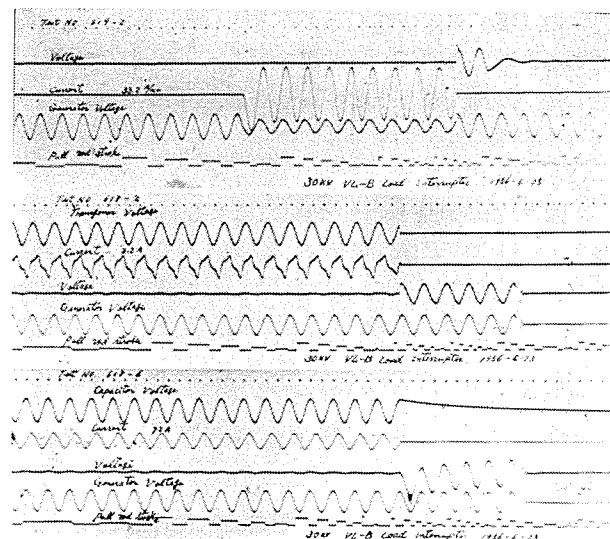 Test No 619-2
Voltage
Current
Generator Voltage
Pull rod stroke
30KV VL-B Load Interruptor 1956-6-23
Test No 618-2
Transformer Voltage
Current 2.2 A
Voltage
Generator Voltage
Pull rod stroke
30KV VL-B Load Interruptor 1956-6-23
Test No.
Capacitor Voltage
Current
Voltage
Generator Voltage
Pull rod stroke
30KV VL-B Load Interruptor 1956-6-23